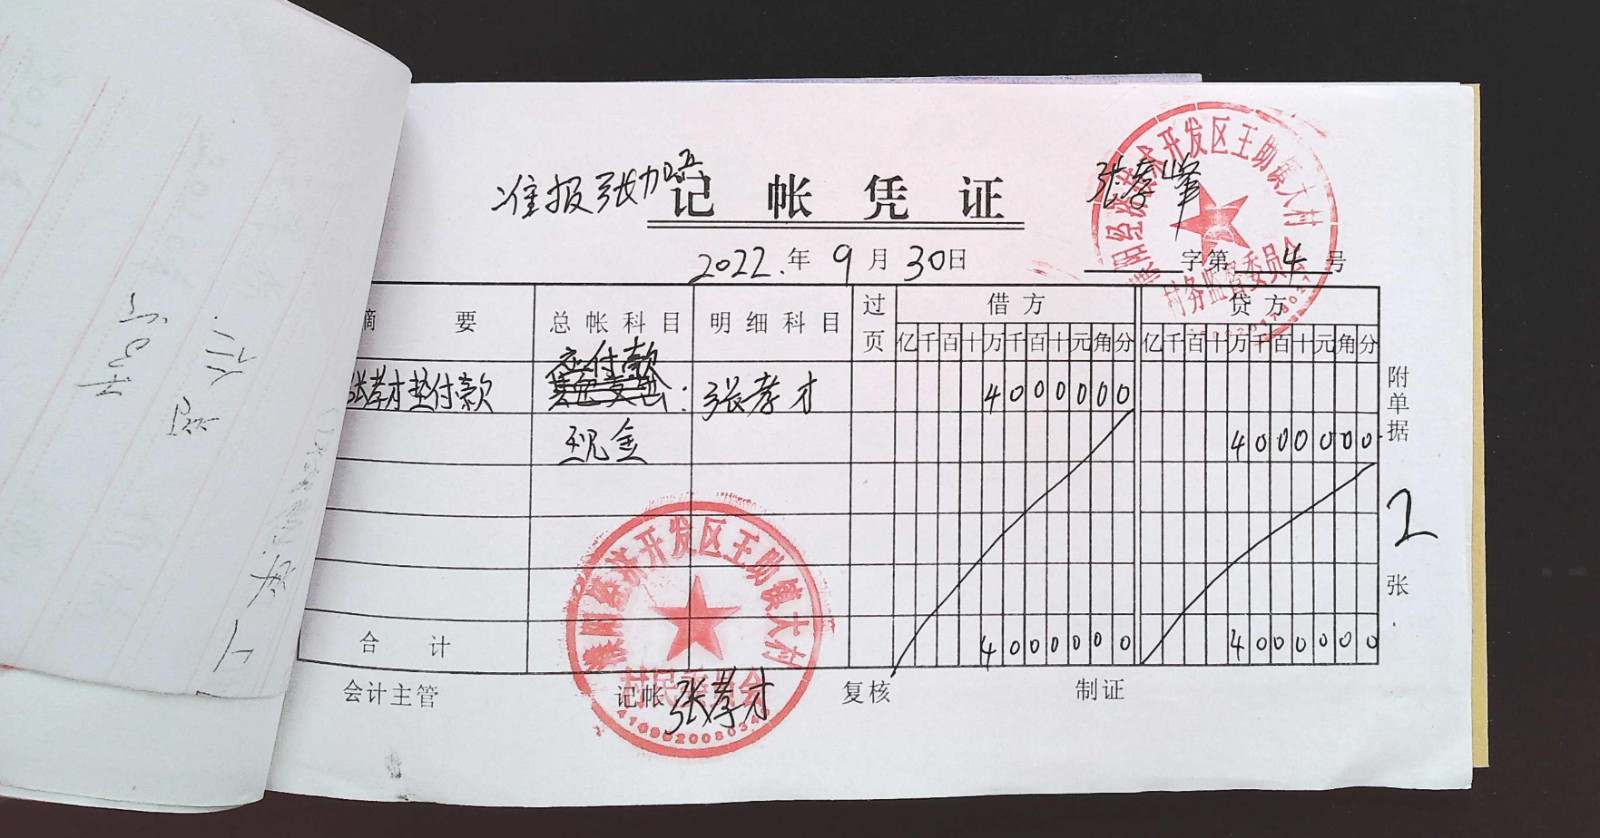 准报张
记帐凭证
张孝峰
2022.年9月30日
字第4号
摘要 总帐科目 明细科目 过页 借方 贷方
亿千百十万千百十元角分 亿千百十万千百十元角分
应付款
张孝才垫付款 : 张孝才 4000000
现金 4000000
合计 4000000 4000000
附单据2张
会计主管 记帐 张孝才 复核 制证
濮阳经济技术开发区王助镇大村
村务监督委员会
濮阳县济开发区王助镇大村
村民委员会